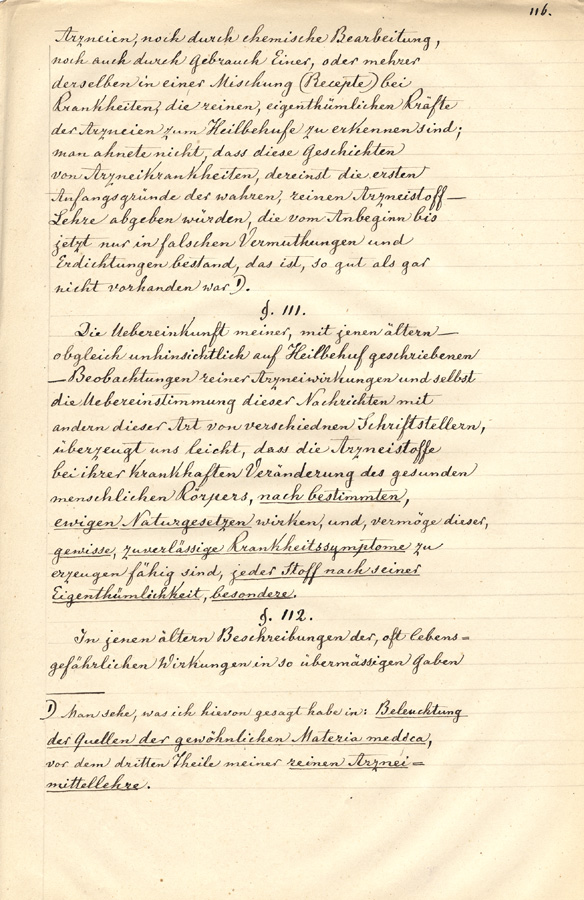 116.
Arzneien, noch durch chemische Bearbeitung,
noch auch durch Gebrauch Einer, oder mehrer
derselben in einer Mischung (Recepte) bei
Krankheiten, die reinen, eigenthümlichen Kräfte
der Arzneien zum Heilbehufe zu erkennen sind;
man ahnete nicht, dass diese Geschichten
von Arzneikrankheiten, dereinst die ersten
Anfangsgründe der wahren, reinen Arzneistoff—
Lehre abgeben würden, die vom Anbeginn bis
jetzt nur in falschen Vermuthungen und
Erdichtungen bestand, das ist, so gut als gar
nicht vorhanden war 1).
§. 111.
Die Uebereinkunft meiner, mit jenen ältern—
obgleich unhinsichtlich auf Heilbehuf geschriebenen
—Beobachtungen reiner Arzneiwirkungen und selbst
die Uebereinstimmung dieser Nachrichten mit
andern dieser Art von verschiednen Schriftstellern,
überzeugt uns leicht, dass die Arzneistoffe
bei ihrer krankhaften Veränderung des gesunden
menschlichen Körpers, nach bestimmten,
ewigen Naturgesetzen wirken, und, vermöge dieser,
gewisse, zuverlässige Krankheitssymptome zu
erzeugen fähig sind, jeder Stoff nach seiner
Eigenthümlichkeit, besondere.
§. 112.
In jenen ältern Beschreibungen der, oft lebens=
gefährlichen Wirkungen in so übermässigen Gaben
1) Man sehe, was ich hievon gesagt habe in: Beleuchtung
der Quellen der gewöhnlichen Materia medica,
vor dem dritten Theile meiner reinen Arznei=
mittellehre.